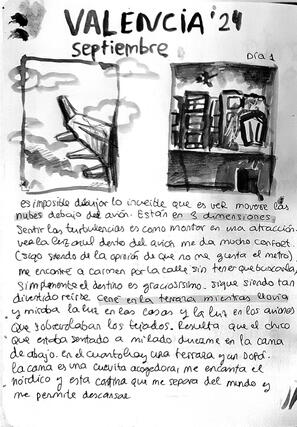 VALENCIA '24
septiembre
Día 1
es imposible dibujar lo increíble que es ver moverse las
nubes debajo del avión. Están en 3 dimensiones.
Sentir las turbulencias es como montar en una atracción.
ver la luz azul dentro del avión me da mucho confort.
(sigo siendo de la opinión de que no me gusta el metro)
me encontré a carmen por la calle sin tener que buscarla
simplemente el destino es graciosísimo. sigue siendo tan
divertido reirse. cené en la terraza mientras llovía
y miraba la luz en las casas y la luz en los aviones
que sobrevolaban los tejados. Resulta que el chico
que estaba sentado a mi lado duerme en la cama
de abajo. En el cuarto hay una terraza y un
la cama es una cuevita acogedora, me encanta el
nórdico y esta cortina que me separa del mundo y
me permite descansar